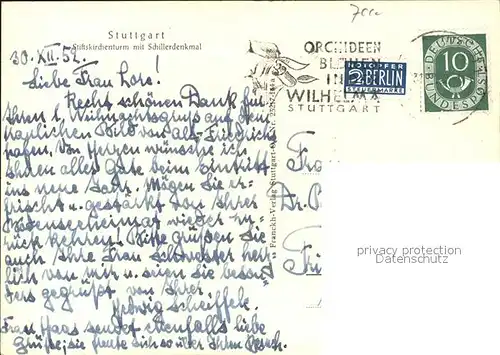 Stuttgart
Stiftskirchenturm mit Schillerdenkmal
30. XII. 52.
Liebe Frau Lore!
Recht schönen Dank für
Ihren l. Weihnachtsgruss auf dem
traulichen Bild von Alt-Friedrichs
hafen. Von Herzen wünsche ich
Ihnen alles Gute beim Eintritt
ins neue Jahr. Mögen Sie er-
frischt u. gestärkt von Ihrer
Bodenseeheimat wieder zu-
rück kehren. Bitte grüßen Sie
auch Ihre Frau Schwester herz
lich von mir u. seien Sie beson
ders gegrüßt von Ihrer
Hedwig Scheiffele.
Frau Haas sendet ebenfalls liebe
Grüße, sie freute sich so über Ihren
ORCHIDEEN
BLÜHEN
IN DER
WILHELMA
STUTTGART
NOTOPFER
2 BERLIN
STEUERMARKE
DEUTSCHE
BUNDESPOST
10
Franckh-Verlag Stuttgart-O
Fra
Dr.
privacy protection
Datenschutz